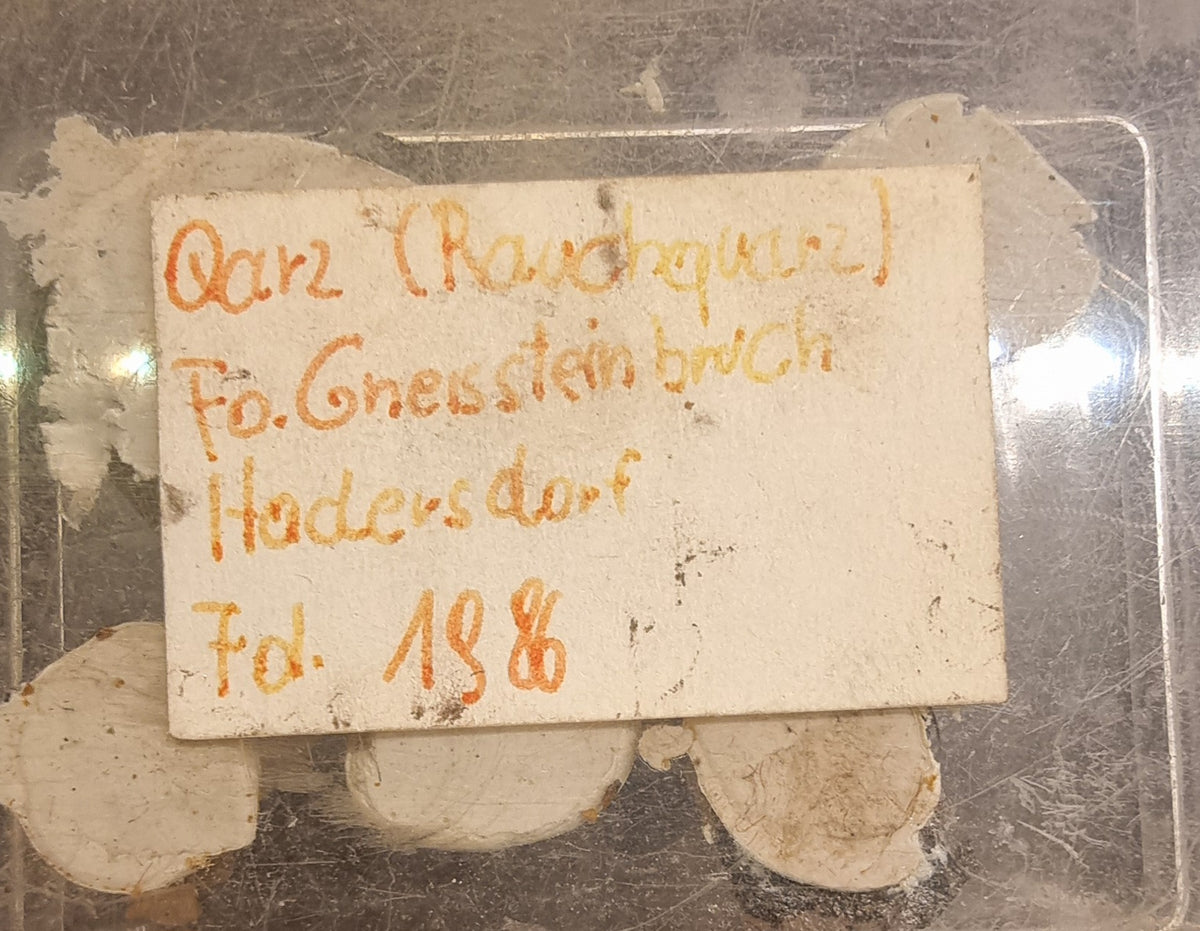 Qarz (Rauchquarz)
Fo. Gneissteinbruch
Hadersdorf
Fd. 1986